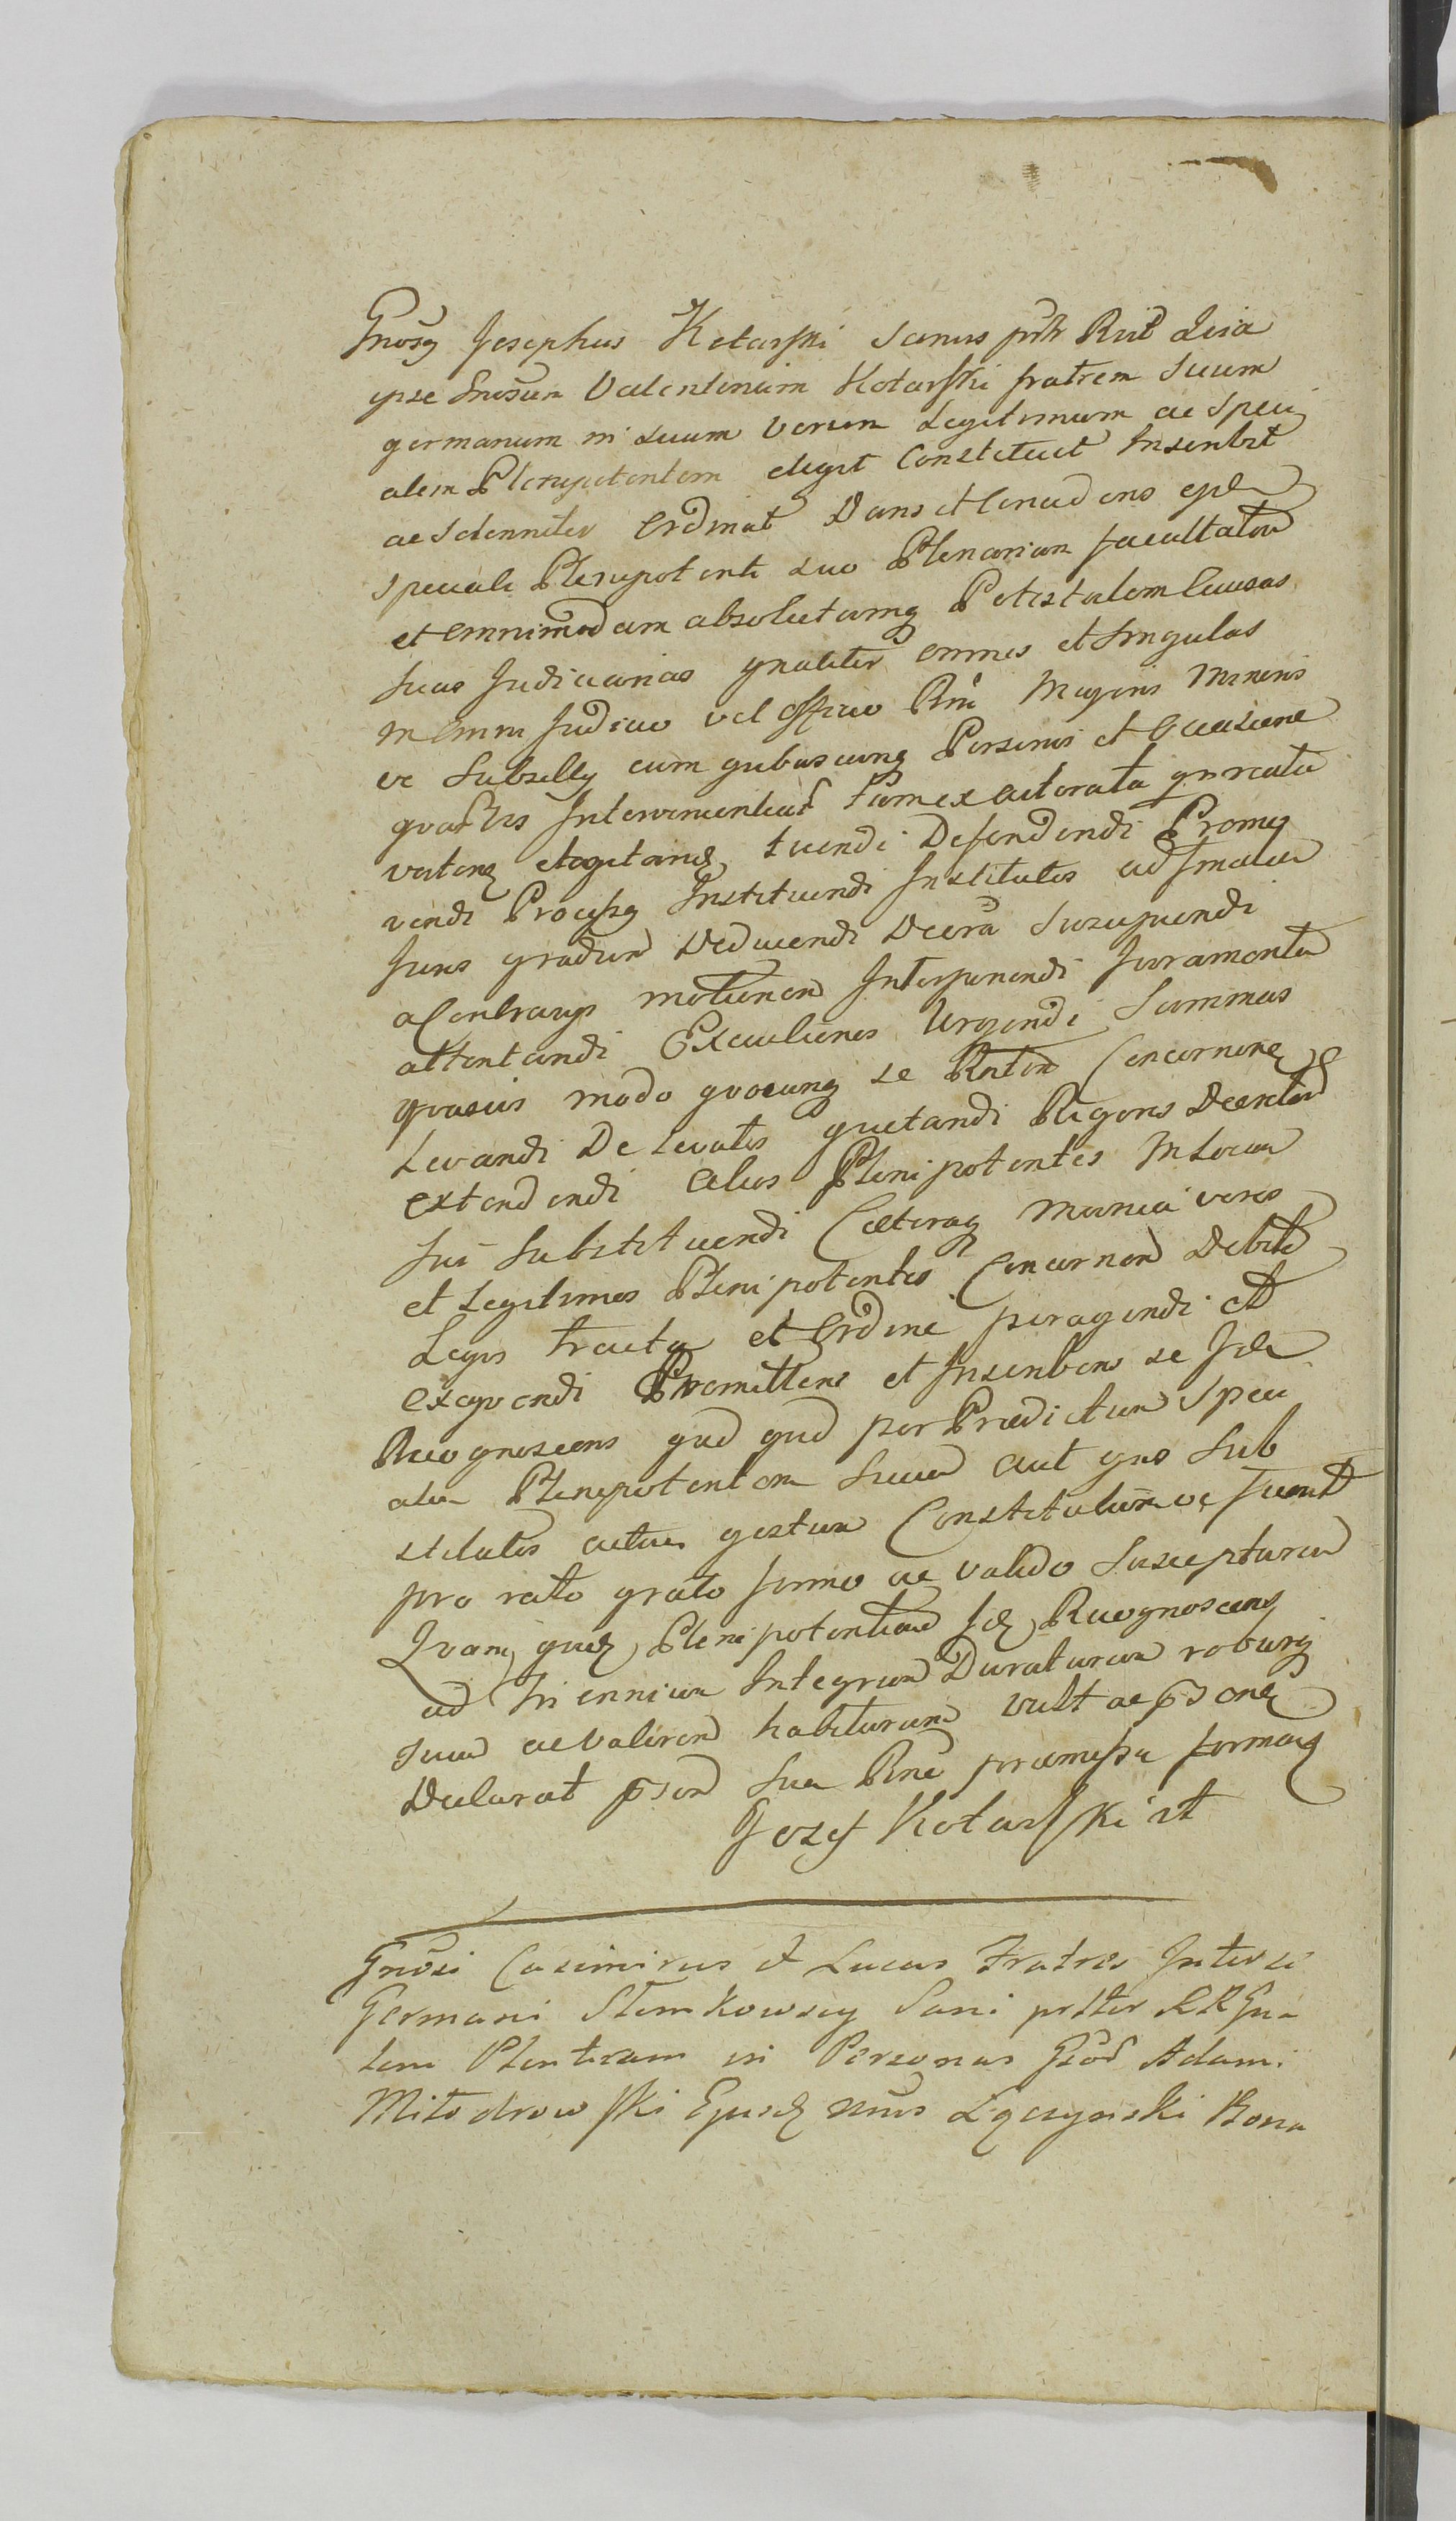 Gnosq Josephus Kotarski Sanus pntr Rnit Quia
ipse Gnosum Valentinum Kotarski fratrem Suum
germanum in Suum Verum Legitimum ac Speci
alem Plenipotentem elegit Constituit Inscribit
ac Solenniter Ordinat Dans et Concedens eple
Speciali Plenipotenti suo Plenariam facultatem
et omnimodam absolutamq Potestatem Causas
Suas Judiciarias gnaliter omnes et Singulas
in Omni Judicio vel Officio Rni Majoris Minoris
ve Subsellij cum quibuscunq Personis et Occasione
quarvis Intervenientiar tam ex actoratu qm reatu
vertenq et agitanq tuendi Defendendi Promo
vendi Processq Instituendi Institutos ad finalem
Juris gradum Deducendi Decreta Suscipiendi
a Contrarijs motionem Interponendi Juramenta
attentandi Executiones Urgendi Summas
quasvis modo quocunq se Rntem Concernenq
Levandi De Levatis quietandi Rigores Decretor
extendendi Alios Plenipotentes In Locum
Sui Substituendi Cæteraq Munia veros
et Legitimos Plenipotentes Concernen Debito
Legis tractu et Ordine peragendi et
exequendi Promittens et Inscribens se Idem
Recognoscens qud qud per Prædictum Speci
alem Plenipotentem Suum aut ejus Sub
stitutos actum gestum Constitutumve fuerit
pro rato grato firmo ac valido Suscepturum
Quamquid Plenipotentiam Idq Recognoscens
ad Triennium Integrum Duraturam roburq
Suum ac Valorem habituram vult ac pntq
Declarat psentq Sua Rne præmissa formaq
Jozef Kotarski st
Gnosi Casimirus et Lucas Fratres Inter se
Germani Slemkowscy Sani pnter RRgna
lem Plentiam in Personas Gsor Adami
Miłodrowski Ejusdq nnis Łączyński Bona